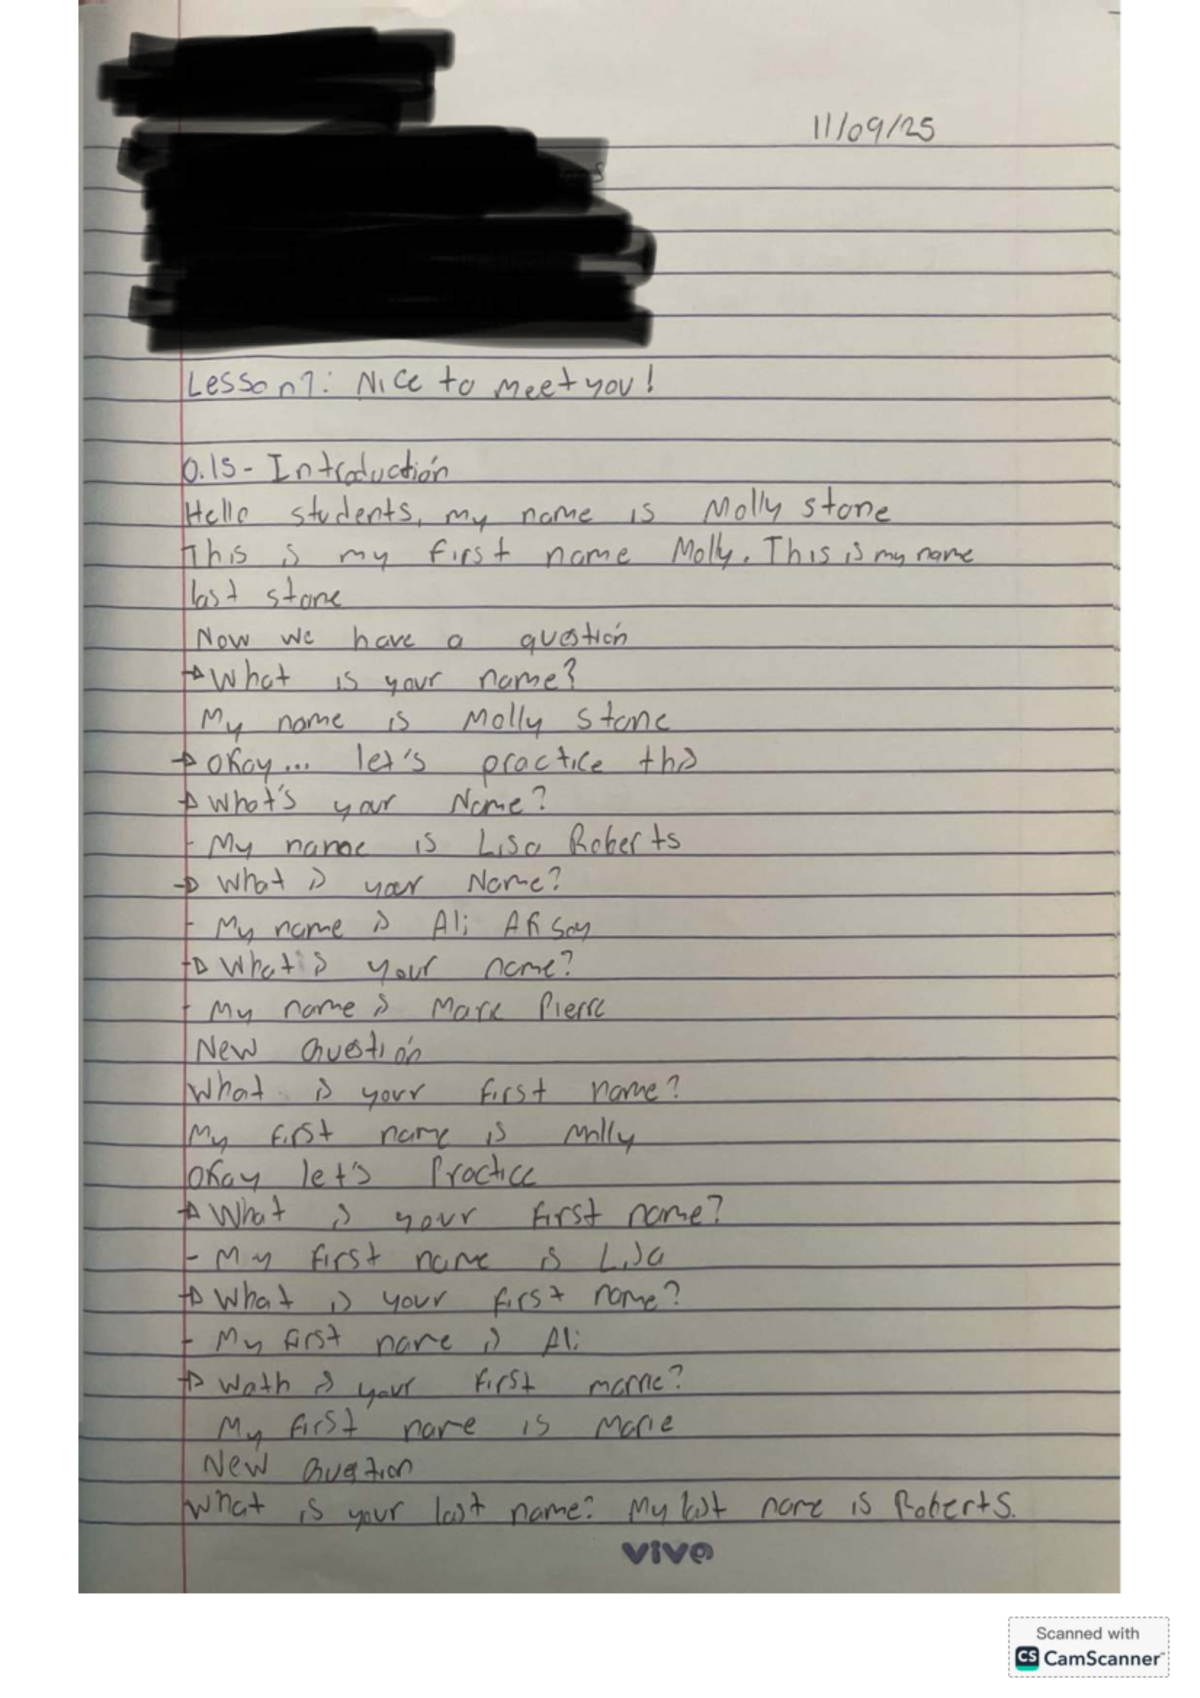 11/09/25
Lesson 1: Nice to meet you!
0.15 - Introductión
Hello students, my name is Molly stone
This is my first name Molly. This is my name
last stone
Now we have a questión
→ What is your name?
My name is Molly stone
→ Okay... let's practice this
→ What's your Name?
- My name is Lisa Roberts
→ What is your Name?
- My name is Ali Aksoy
→ What is your name?
- My name is Marie Pierre
New Questión
What is your first name?
My first name is Molly
Okay let's Practice
→ What is your first name?
- My first name is Lisa
→ What is your first name?
- My first name is Ali
→ Wath is your first name?
My first name is Marie
New Question
What is your last name? My last name is Roberts.
vivo
Scanned with
CS CamScanner